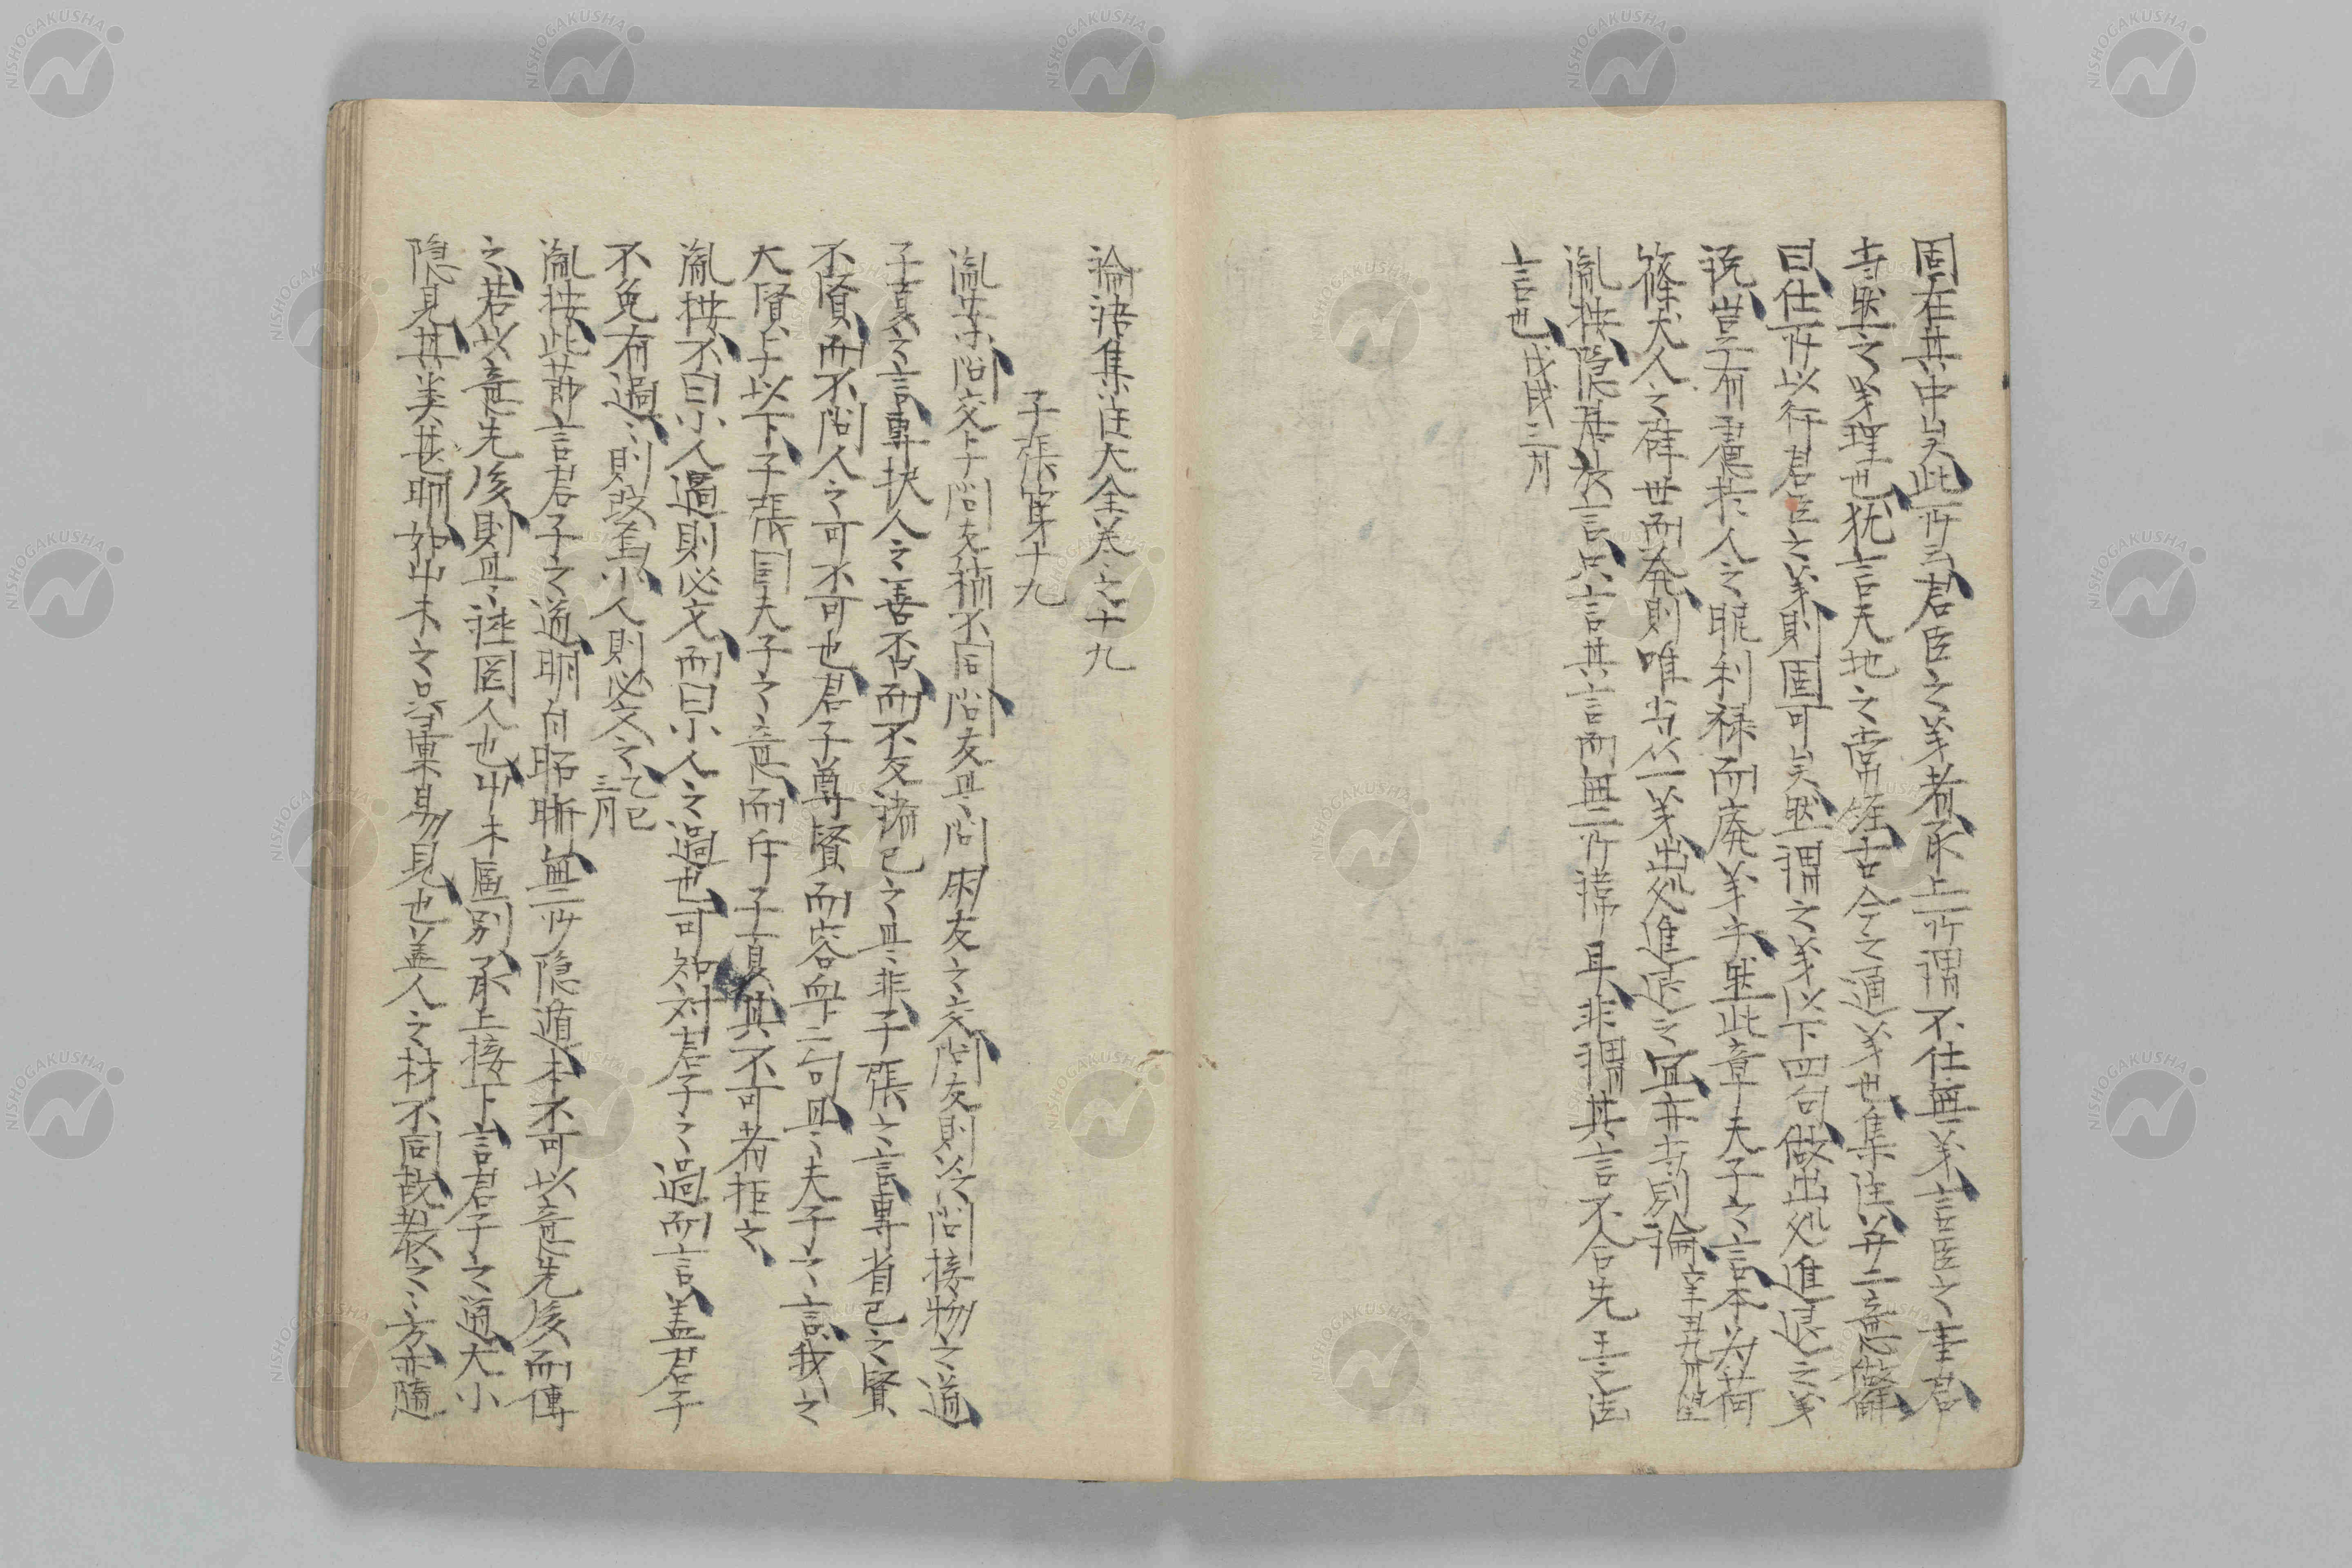 固在其中矣此所云君臣之義者承上所謂不仕無義言臣之事君
当然之義理也猶言天地之常経古今之通義也集注并二意做解
曰仕所以行君臣之義則固可矣然謂之義以下四句做出処進退之義
説豈有君人之昵利禄而廃義乎然此章夫子之言本為荷
篠丈人之辟世而発則唯当以義出処進退之宜并当別論辛丑九月望
胤按隠居放言只言其言而無所諱耳非謂其言不合先王之法
言也戊戌三月
論語集注大全巻之十九
子張第十九
胤按問交与問友稍不同問友是問朋友之交問交則泛問接物之道
子夏之言専択人之善否而不反諸己之是非子張之言専省己之賢
不賢而不問人之可不可也君子尊賢而容衆二句是夫子之言我之
大賢与以下子張因夫子之意而斥子夏其不可者拒之
胤按不曰小人過則必文而曰小人之過也可知対君子之過而言蓋君子
不免有過〻則改焉小人則必文之乙巳三月
胤按此節言君子之道明白昭晰無所隠遁本不可以意先後而伝
之若以意先後則是誣罔人也草木区別承上接下言君子之道大小
隠見其差甚明如草木之品彙易見也蓋人之材不同故教之之方亦随